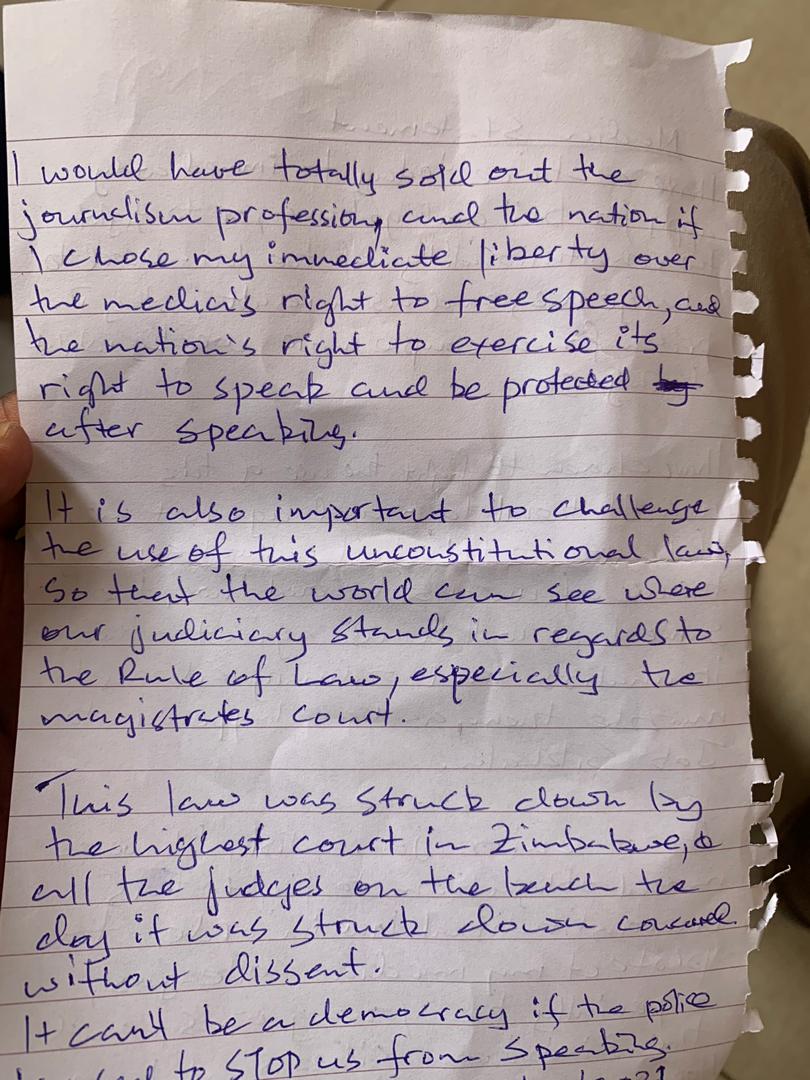 I would have totally sold out the
journalism profession, and the nation if
I chose my immediate liberty over
the media's right to free speech, and
the nation's right to exercise its
right to speak and be protected by
after speaking.
It is also important to challenge
the use of this unconstitutional law,
so that the world can see where
our judiciary stands in regards to
the Rule of Law, especially the
magistrates court.
This law was struck down by
the highest court in Zimbabwe, &
all the judges on the bench the
day it was struck down concured
without dissent.
It can't be a democracy if the police
to STOP us from speaking.